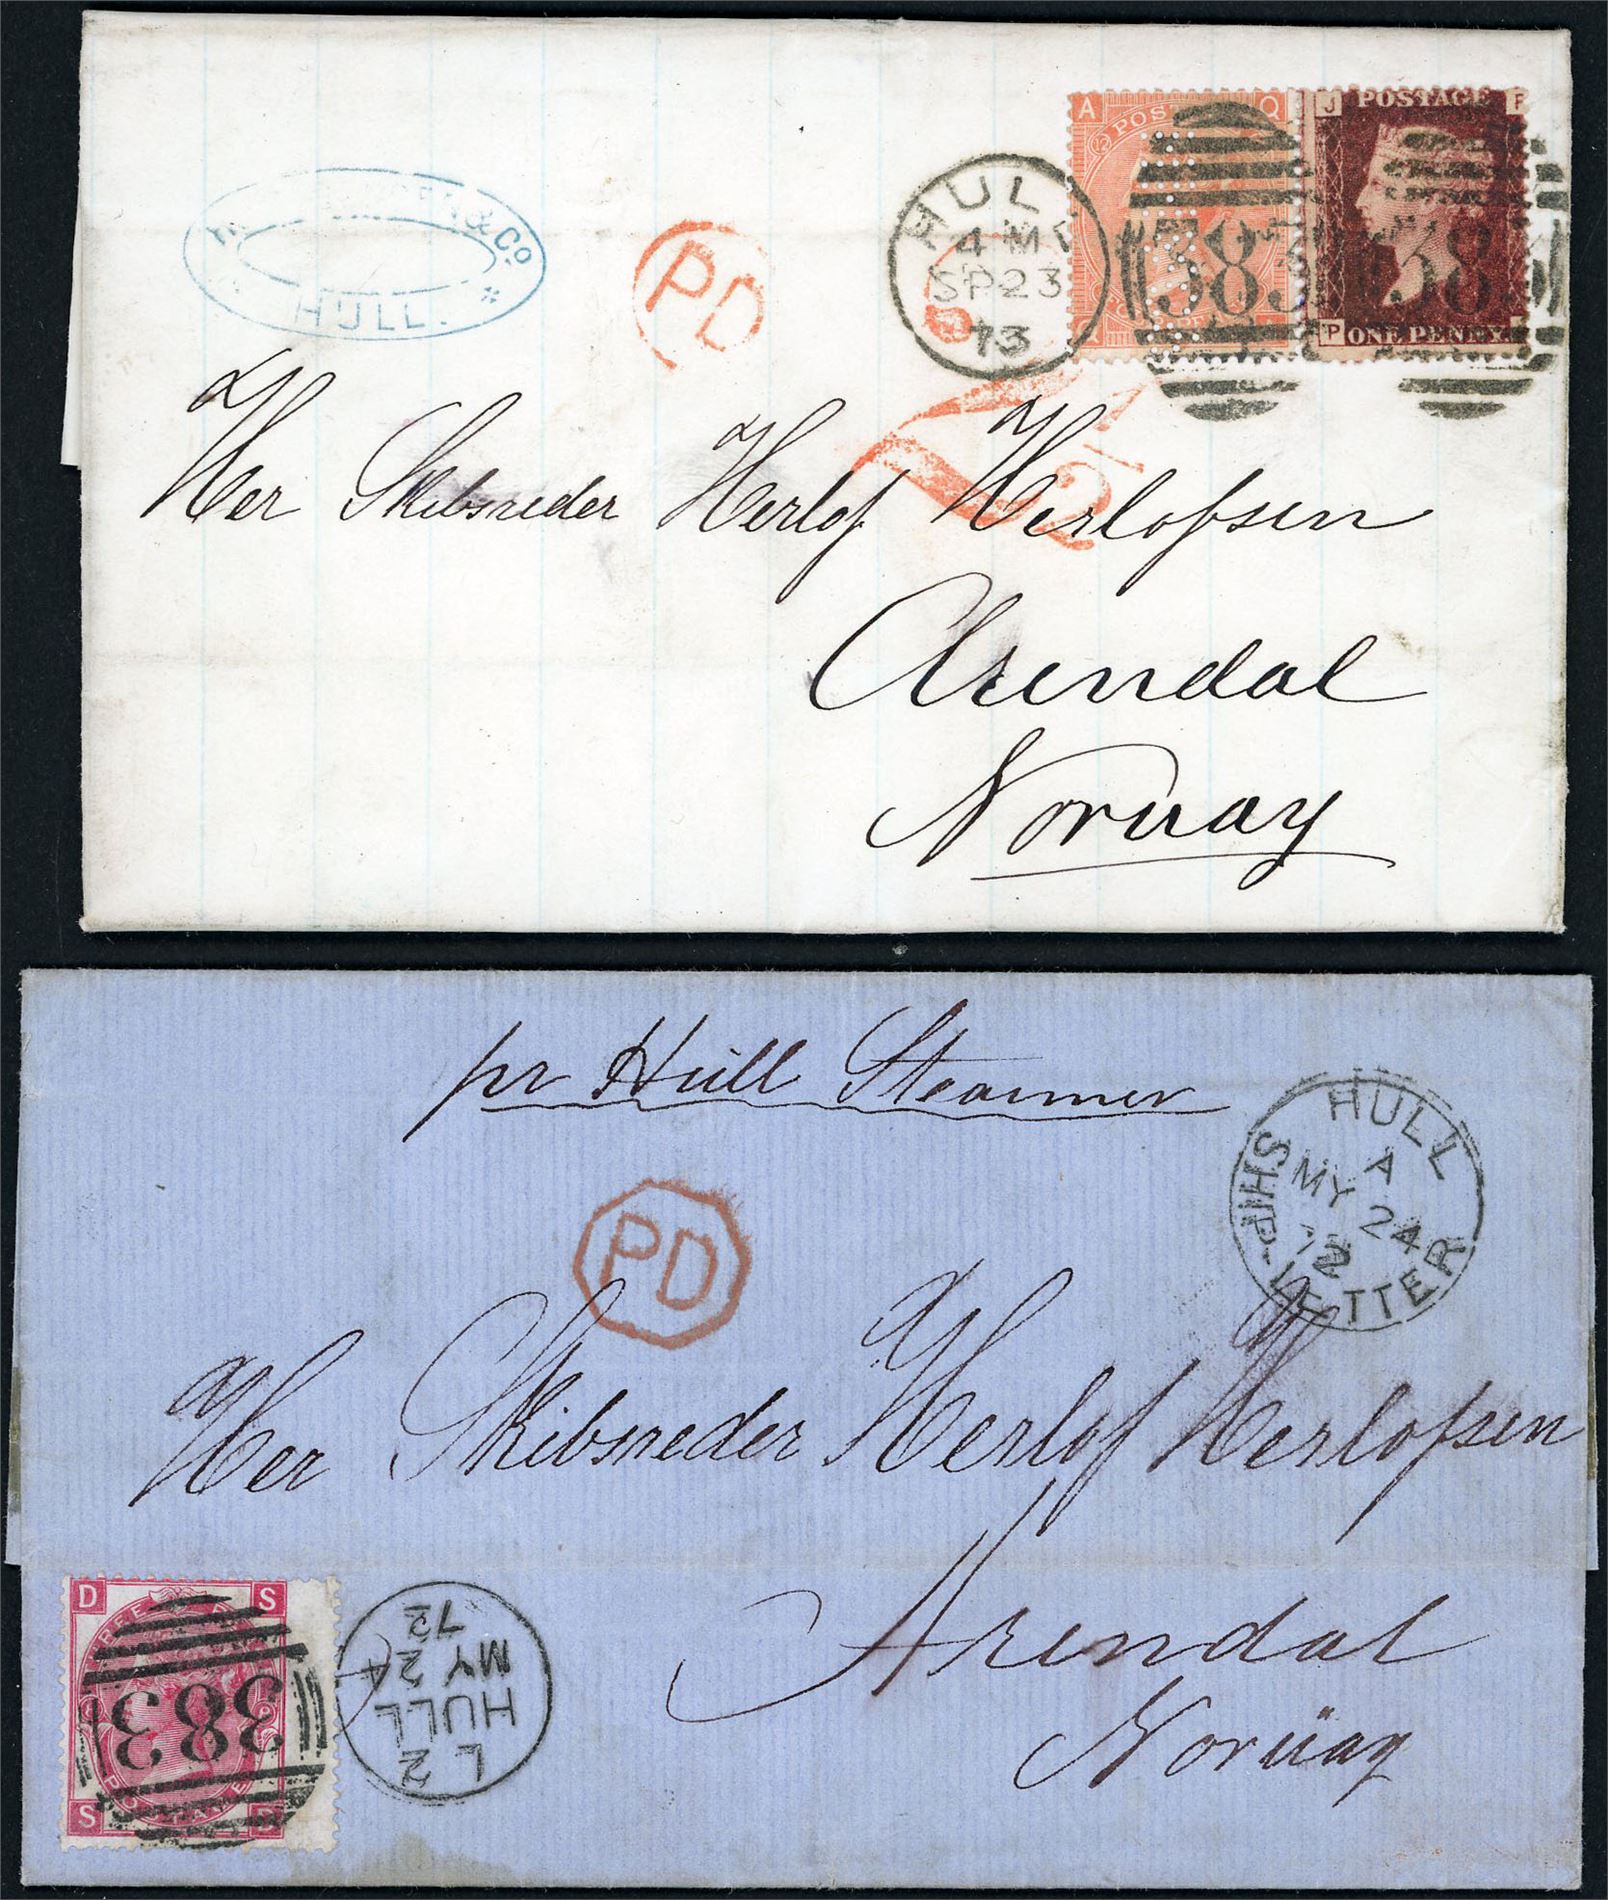 & Co.
HULL.
PD
HULL
4 M
SP 23
73
A Q
12 POS
383
J P
POSTAGE
383
P
ONE PENNY.
1½
Her Skibsreder Herlof Herlofsen
Arendal
Norway
pr Hull Steamer
HULL
A
MY 24
72
SHIP-LETTER
PD
Her Skibsreder Herlof Herlofsen
Arendal
Norway
D S
THREE P
383
S D
L 2
HULL
MY 24
72